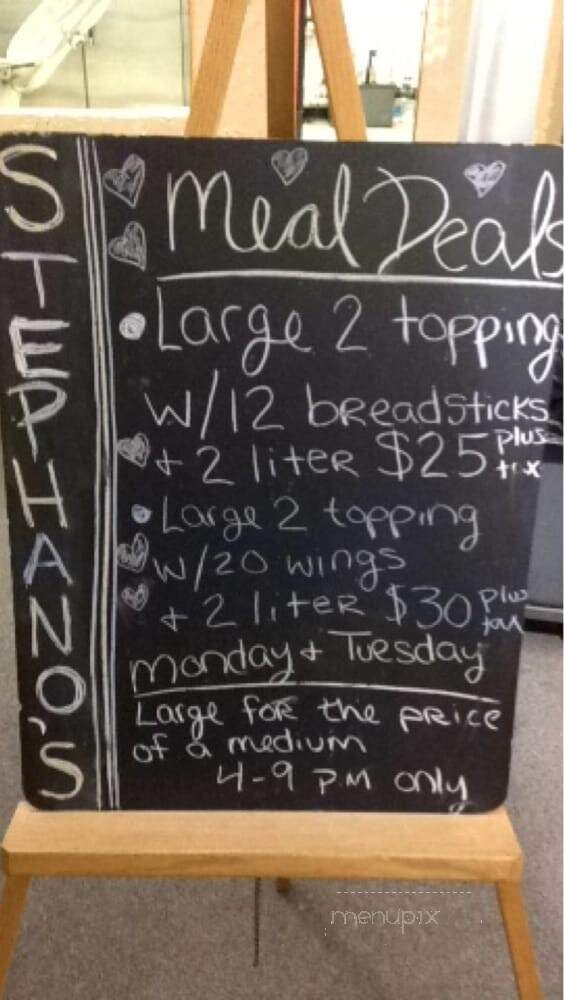 STEPHANO'S
Meal Deals
• Large 2 topping
w/12 breadsticks
+ 2 liter $25 plus tax
• Large 2 topping
w/20 wings
+ 2 liter $30 plus tax
Monday + Tuesday
Large for the price
of a medium
4-9 PM only
menupix